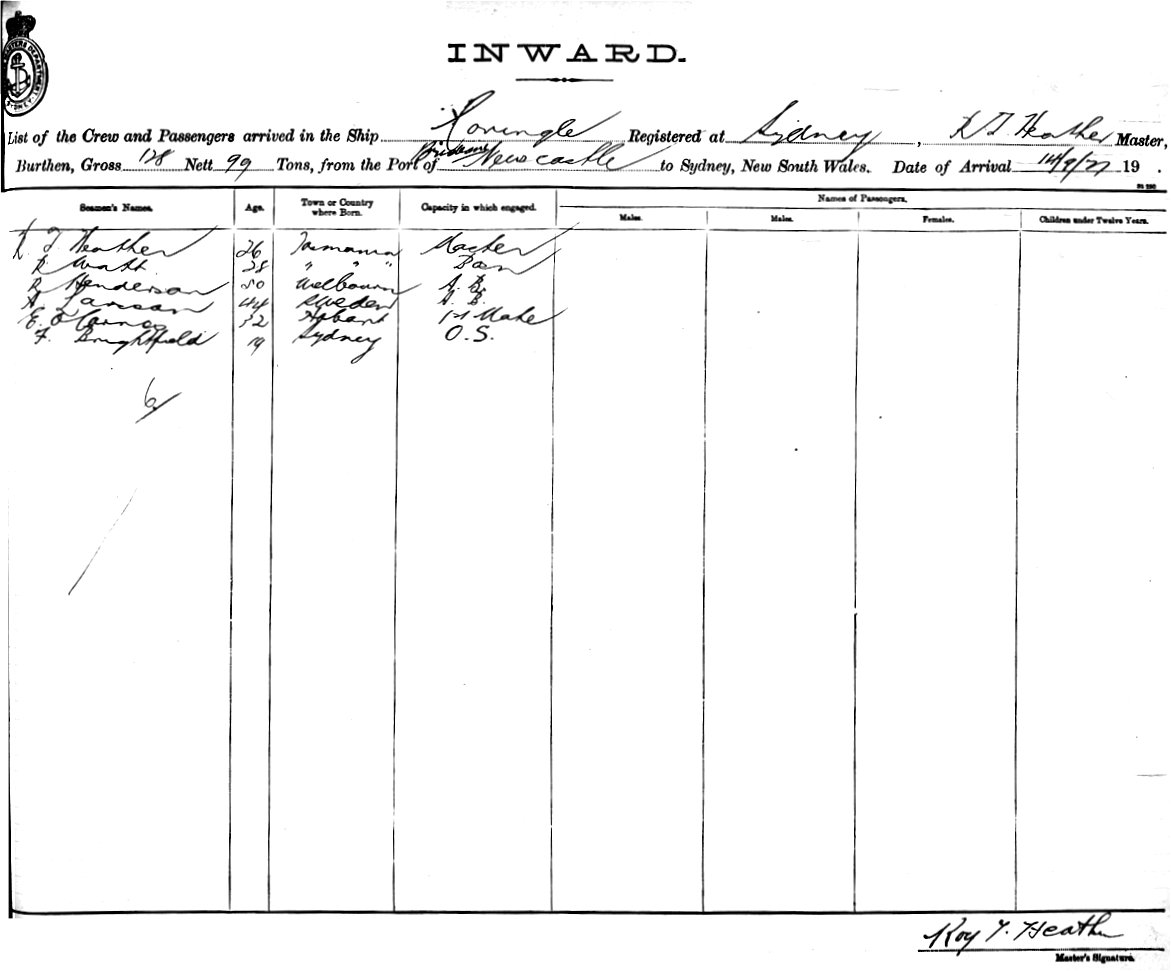 INWARD.
List of the Crew and Passengers arrived in the Ship Koringle Registered at Sydney, R T Heather Master,
Burthen, Gross 128 Nett 99 Tons, from the Port of Newcastle to Sydney, New South Wales. Date of Arrival 14/9/21 19 .
Seamen's Names. Age. Town or Country where Born. Capacity in which engaged. Names of Passengers.
Males. Males. Females. Children under Twelve Years.
R T Heather 26 Tasmania Master
R Watt 28 " " "
R Henderson 50 Melbourn A.B.
A. Larsson 44 Sweden A.B.
E. 32 Hobart 1st Mate
F. Brightfield 19 Sydney O.S.
6
Roy T. Heather
Master's Signature.